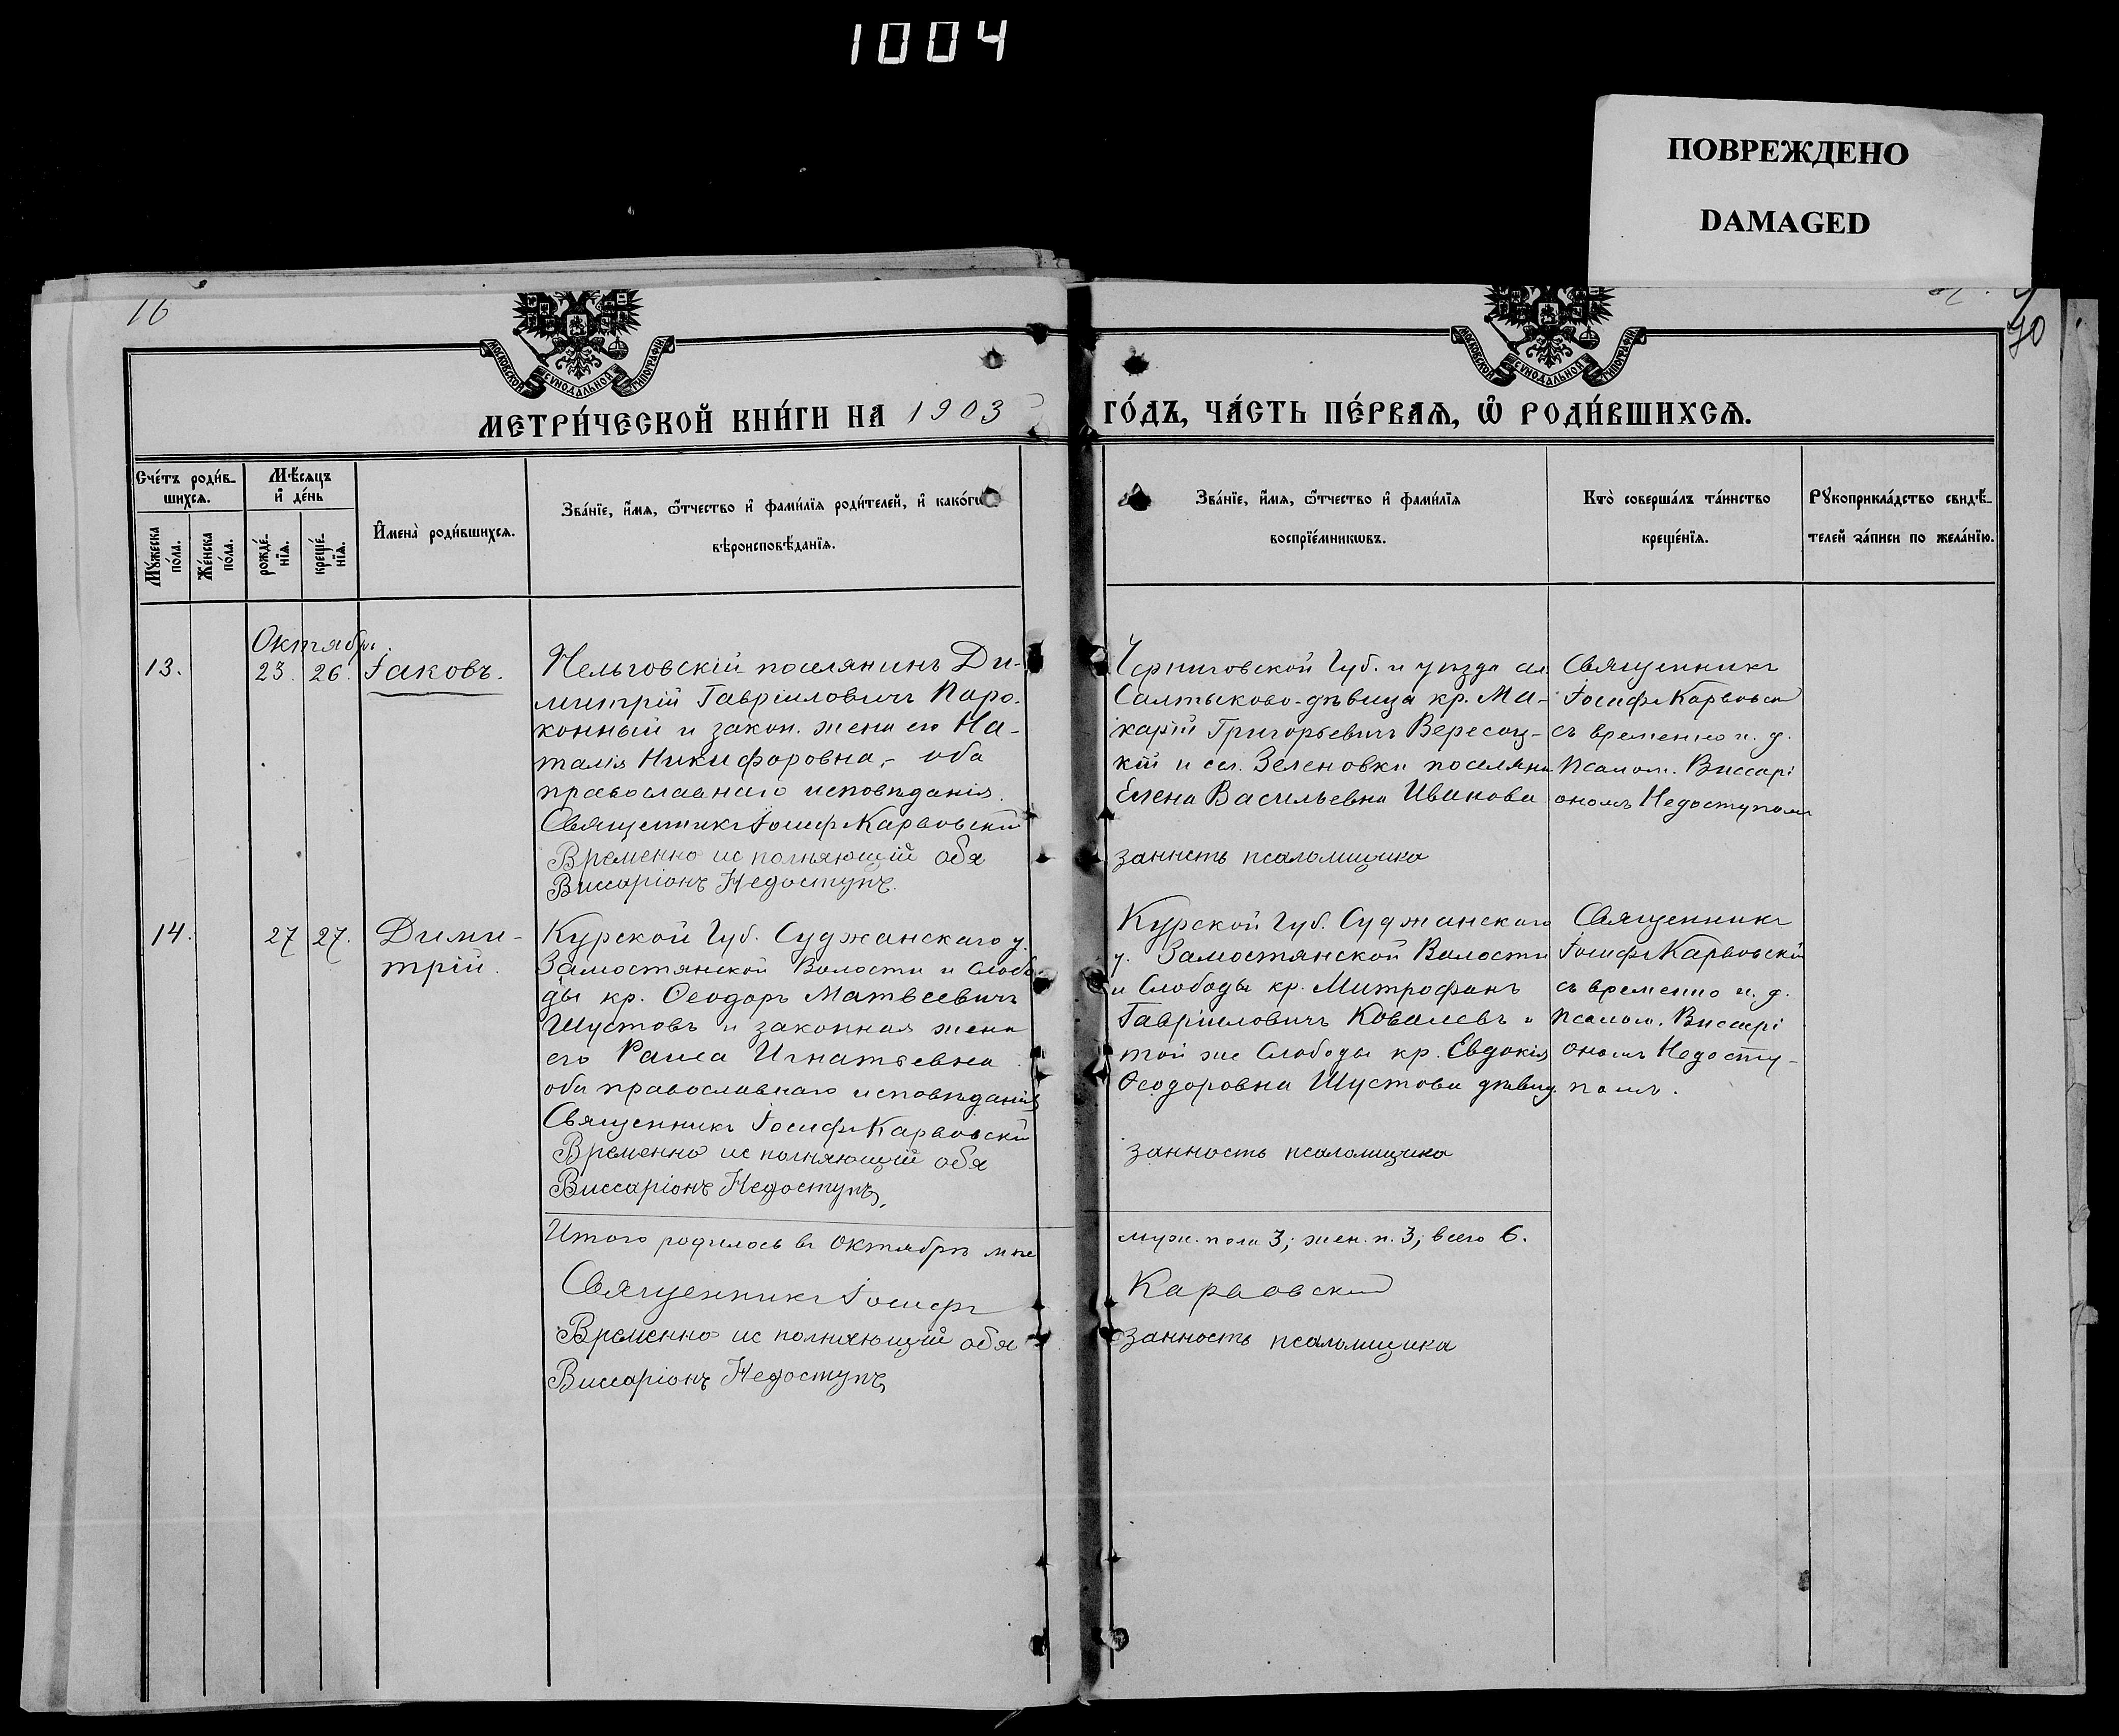 1004
ПОВРЕЖДЕНО
DAMAGED
16
70
МОСКОВСКОЙ СѴНОДАЛЬНОЙ ТИПОГРАФІИ
МОСКОВСКОЙ СѴНОДАЛЬНОЙ ТИПОГРАФІИ
МЕТРИ́ЧЕСКОЙ КНИ́ГИ НА 1903 ГО́ДЪ, ЧА́СТЬ ПЕ́РВАѦ, Ѡ РОДИ́ВШИХСѦ.
Сче́тъ роди́в-
шихсѧ.
Мꙋ́жеска
по́ла.
Же́нска
по́ла.
Мѣ́сѧцъ
и҆ де́нь
рожде́-
нїѧ.
креще́-
нїѧ.
И҆мена̀ роди́вшихсѧ.
Зва́нїе, и҆́мѧ, ѻ҆́тчество и҆ фами́лїѧ роди́телей, и҆ како́гѡ
вѣроисповѣ́данїѧ.
Зва́нїе, и҆́мѧ, ѻ҆́тчество и҆ фами́лїѧ
воспрїе́мникѡвъ.
Кто̀ соверша́лъ та́инство
креще́нїѧ.
Рꙋкоприкла́дство свидѣ́-
телей за́писи по жела́нїю.
Октябрь.
13. 23. 26. Іаковъ.
Нельговскій поселянинъ Ди-
митрій Гавріиловичъ Паро-
конный и закон. жена его На-
талія Никифоровна,- оба
православнаго исповѣданія.
Священникъ Іосифъ Карвовскій
Временно исполняющій обя
занность псаломщика
Виссаріонъ Недоступъ.
Черниговской Губ. и уѣзда
Салтыково-дѣвица кр. Ма-
карій Григорьевичъ Вересоц-
кій и сел. Зеленовки поселянка
Елена Васильевна Иванова
Священникъ
Іосифъ Карвовскій
съ временно и. д.
псалом. Виссарі
ономъ Недоступомъ
14. 27 27. Дими-
трій.
Курской Губ. Суджанскаго у.
Замостянской Волости и Слобо-
ды кр. Ѳеодоръ Матвеевичъ
Шустовъ и законная жена
его Раиса Игнатьевна
оба православнаго исповѣданія
Священникъ Іосифъ Карвовскій
Временно исполняющій обя
занность псаломщика
Виссаріонъ Недоступъ.
Курской Губ. Суджанскаго
у. Замостянской Волости
и Слободы кр. Митрофанъ
Гавріиловичъ Ковалевъ и
той же Слободы кр. Евдокія
Ѳеодоровна Шустова дѣвица
Священникъ
Іосифъ Карвовскій
съ временно и. д.
псалом. Виссарі
ономъ Недосту-
помъ.
Итого родилось въ Октябрѣ м-цѣ муж. пола 3; жен. п. 3; всего 6.
Священникъ Іосифъ Карвовскій
Временно исполняющій обя занность псаломщика
Виссаріонъ Недоступъ